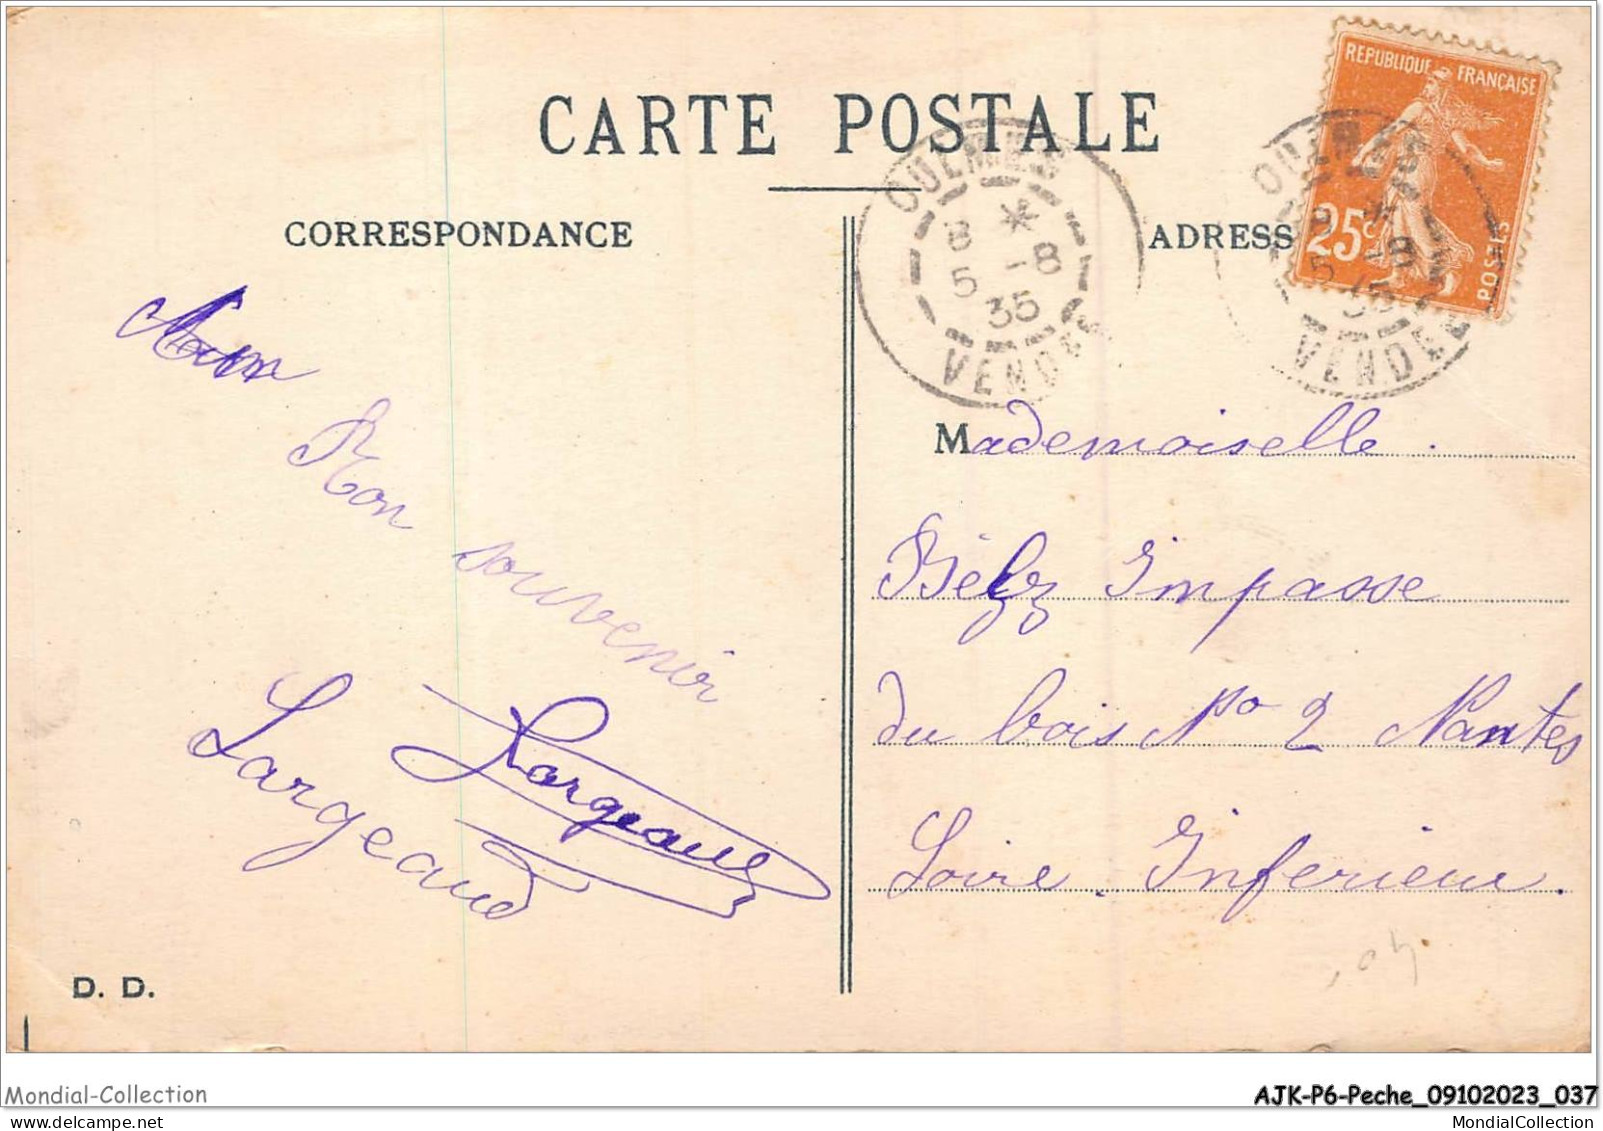 CARTE POSTALE
CORRESPONDANCE
ADRESS
REPUBLIQUE FRANÇAISE
25c
POSTES
8 *
5 -8
35
VENDEE
8 *
5 -8
35
VENDEE
Bon
souvenir
Largeaud
Largeaud
Mademoiselle
Bélz Impasse
du bois No 2 Nantes
Loire Inferieur.
D. D.
Mondial-Collection
AJK-P6-Peche_09102023_037
MondialCollection